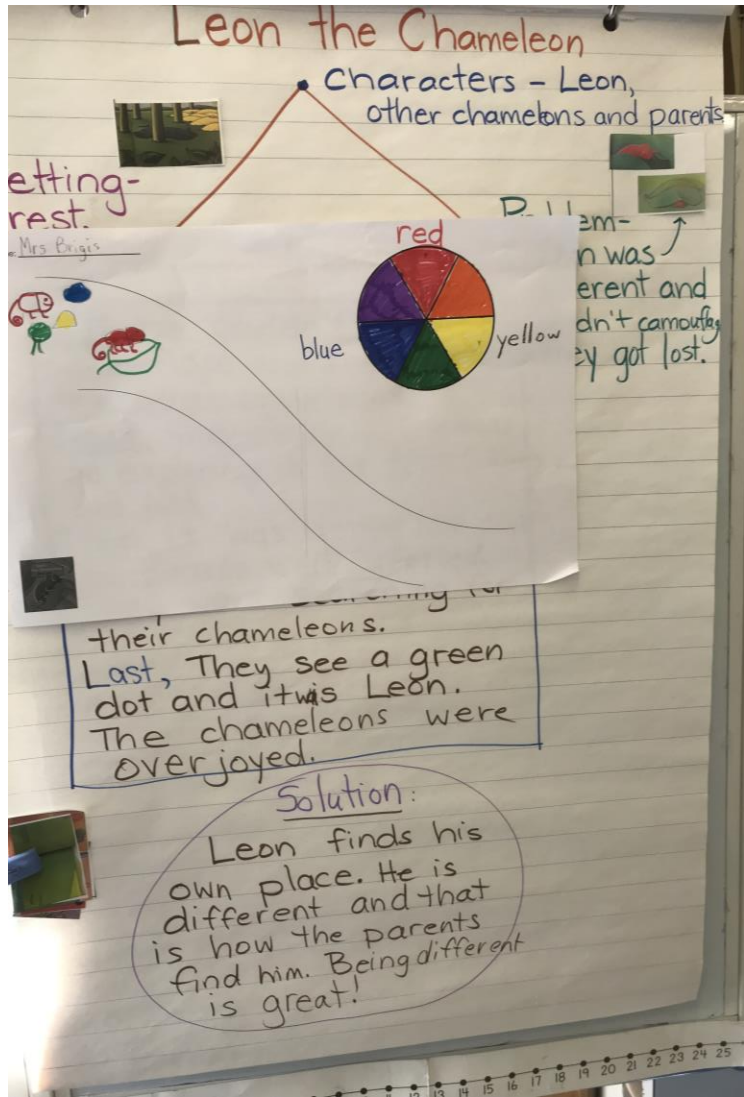 Leon the Chameleon
Characters - Leon,
other chamelons and parents
etting-
rest.
Mrs Brigis
red
blue
yellow
em-
n was
erent and
dn't camouflag
ey got lost.
their chameleons.
Last, They see a green
dot and it was Leon.
The chameleons were
overjoyed.
Solution:
Leon finds his
own place. He is
different and that
is how the parents
find him. Being different
is great!
13 14 15 16 17 18 19 20 21 22 23 24 25